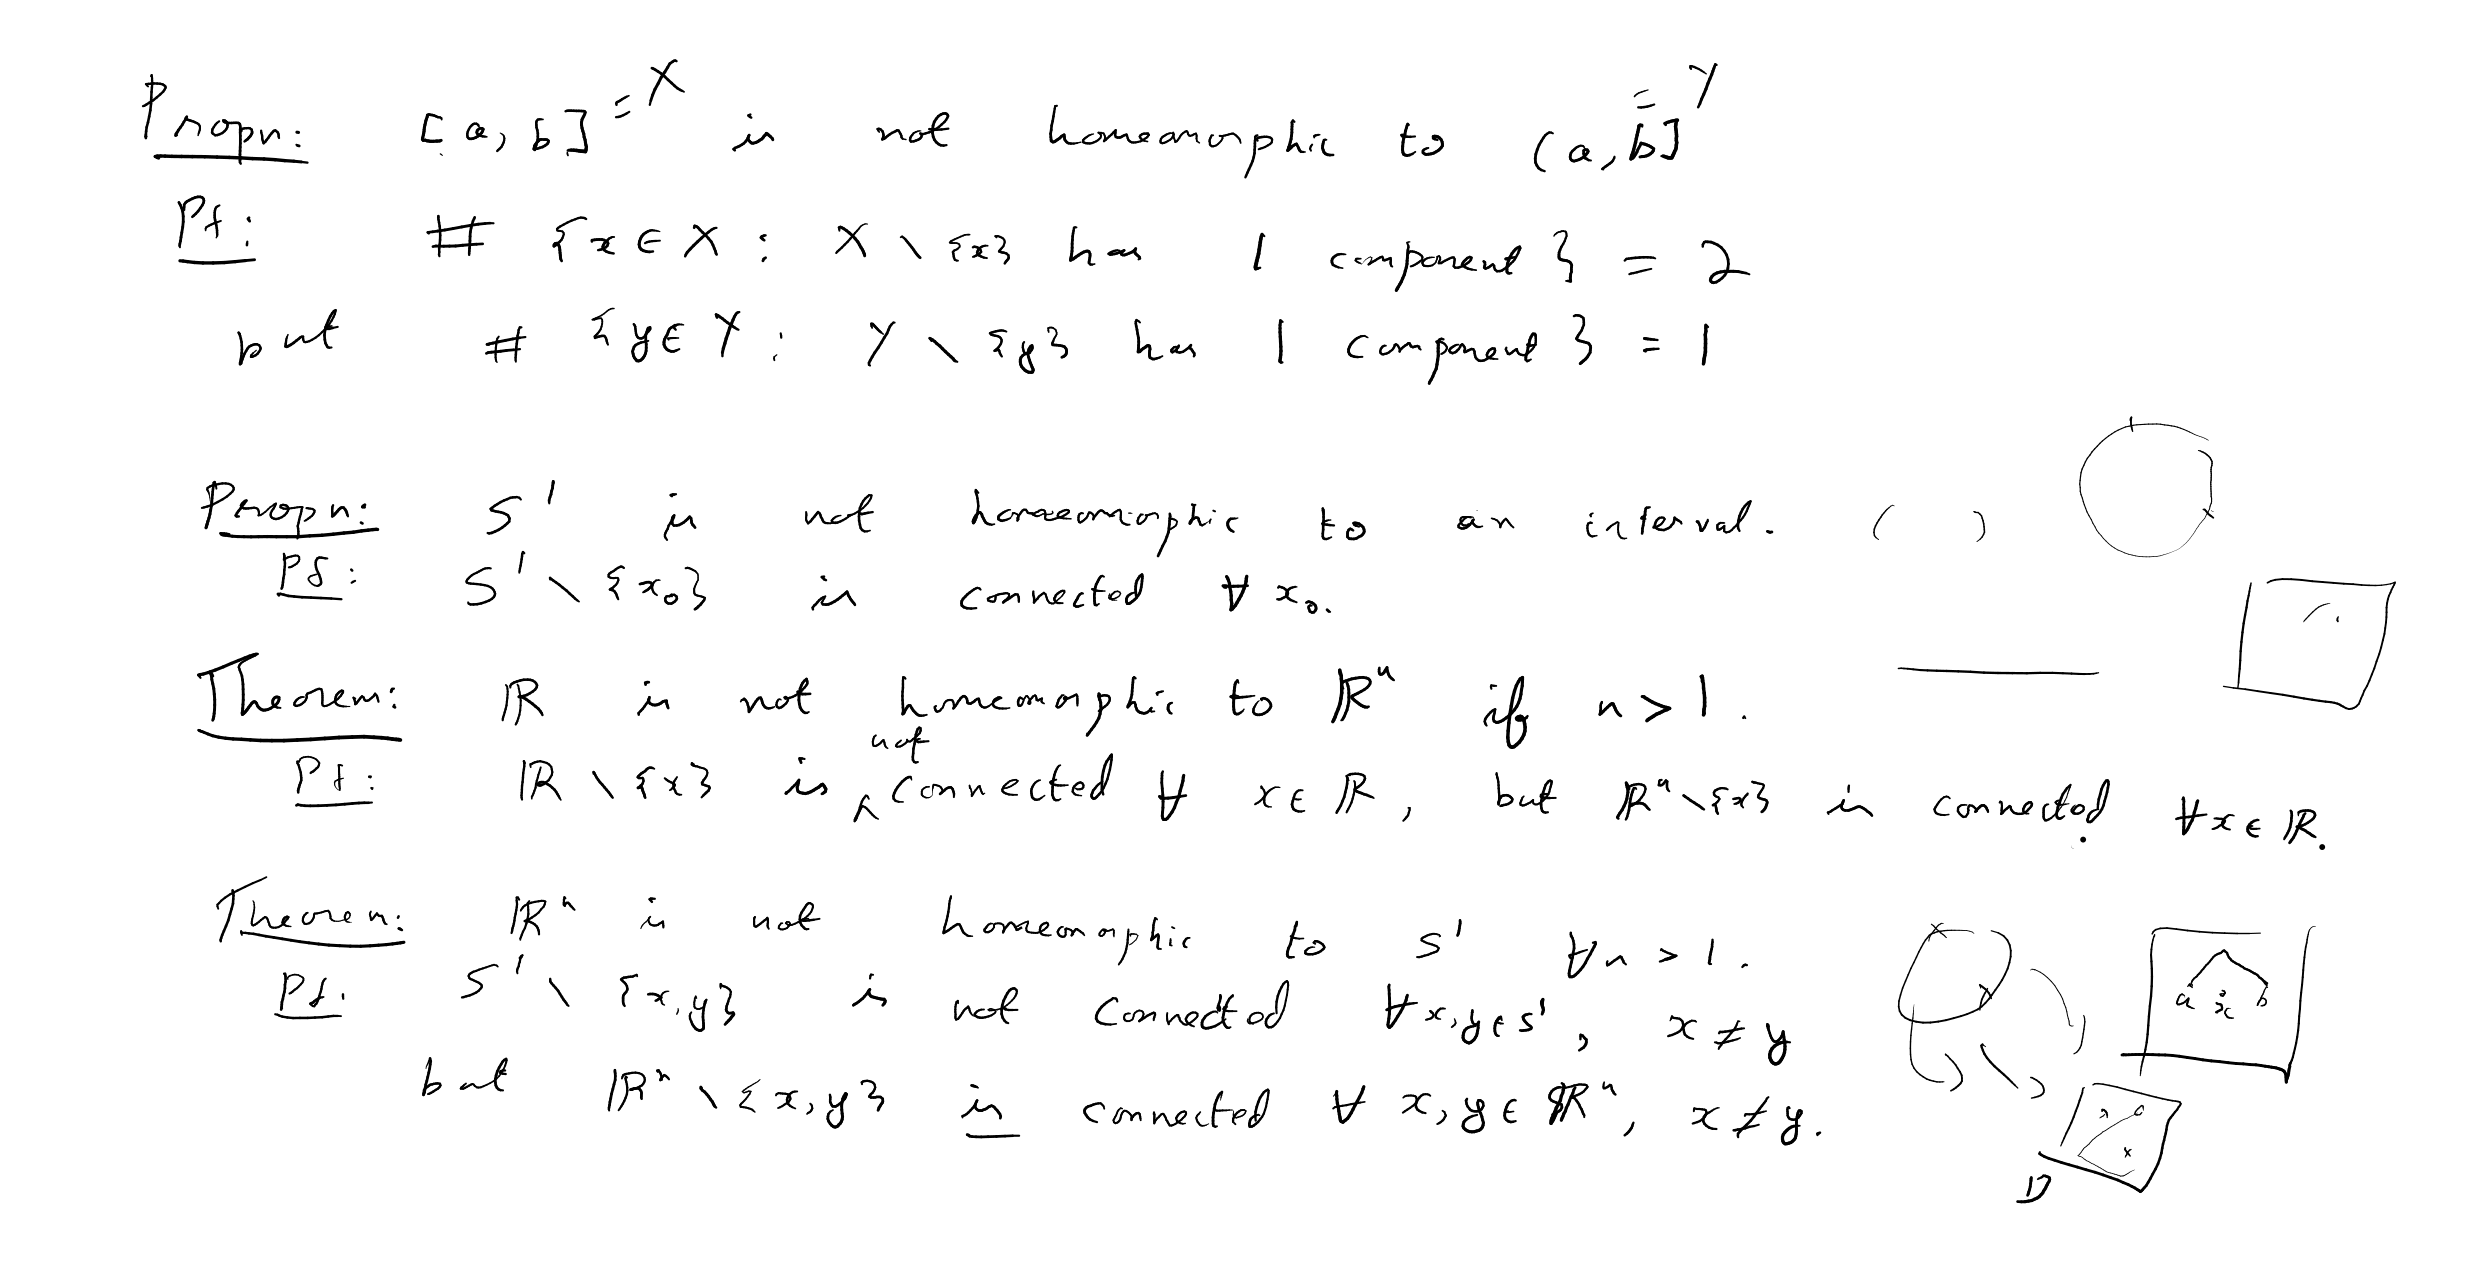 Propn: [a, b] = X is not homeomorphic to (a, b] = Y
Pf: # {x ∈ X : X \ {x} has 1 component } = 2
but # {y ∈ Y : Y \ {y} has 1 component } = 1
Propn: S¹ is not homeomorphic to an interval. ( )
Pf: S¹ \ {x₀} is connected ∀ x₀.
Theorem: ℝ is not homeomorphic to ℝⁿ if n > 1.
Pf: ℝ \ {x} is not connected ∀ x ∈ ℝ, but ℝⁿ \ {x} is connected ∀ x ∈ ℝ.
Theorem: ℝⁿ is not homeomorphic to S¹ ∀ n > 1.
Pf. S¹ \ {x, y} is not connected ∀ x, y ∈ S¹, x ≠ y
a x b
but ℝⁿ \ {x, y} is connected ∀ x, y ∈ ℝⁿ, x ≠ y.